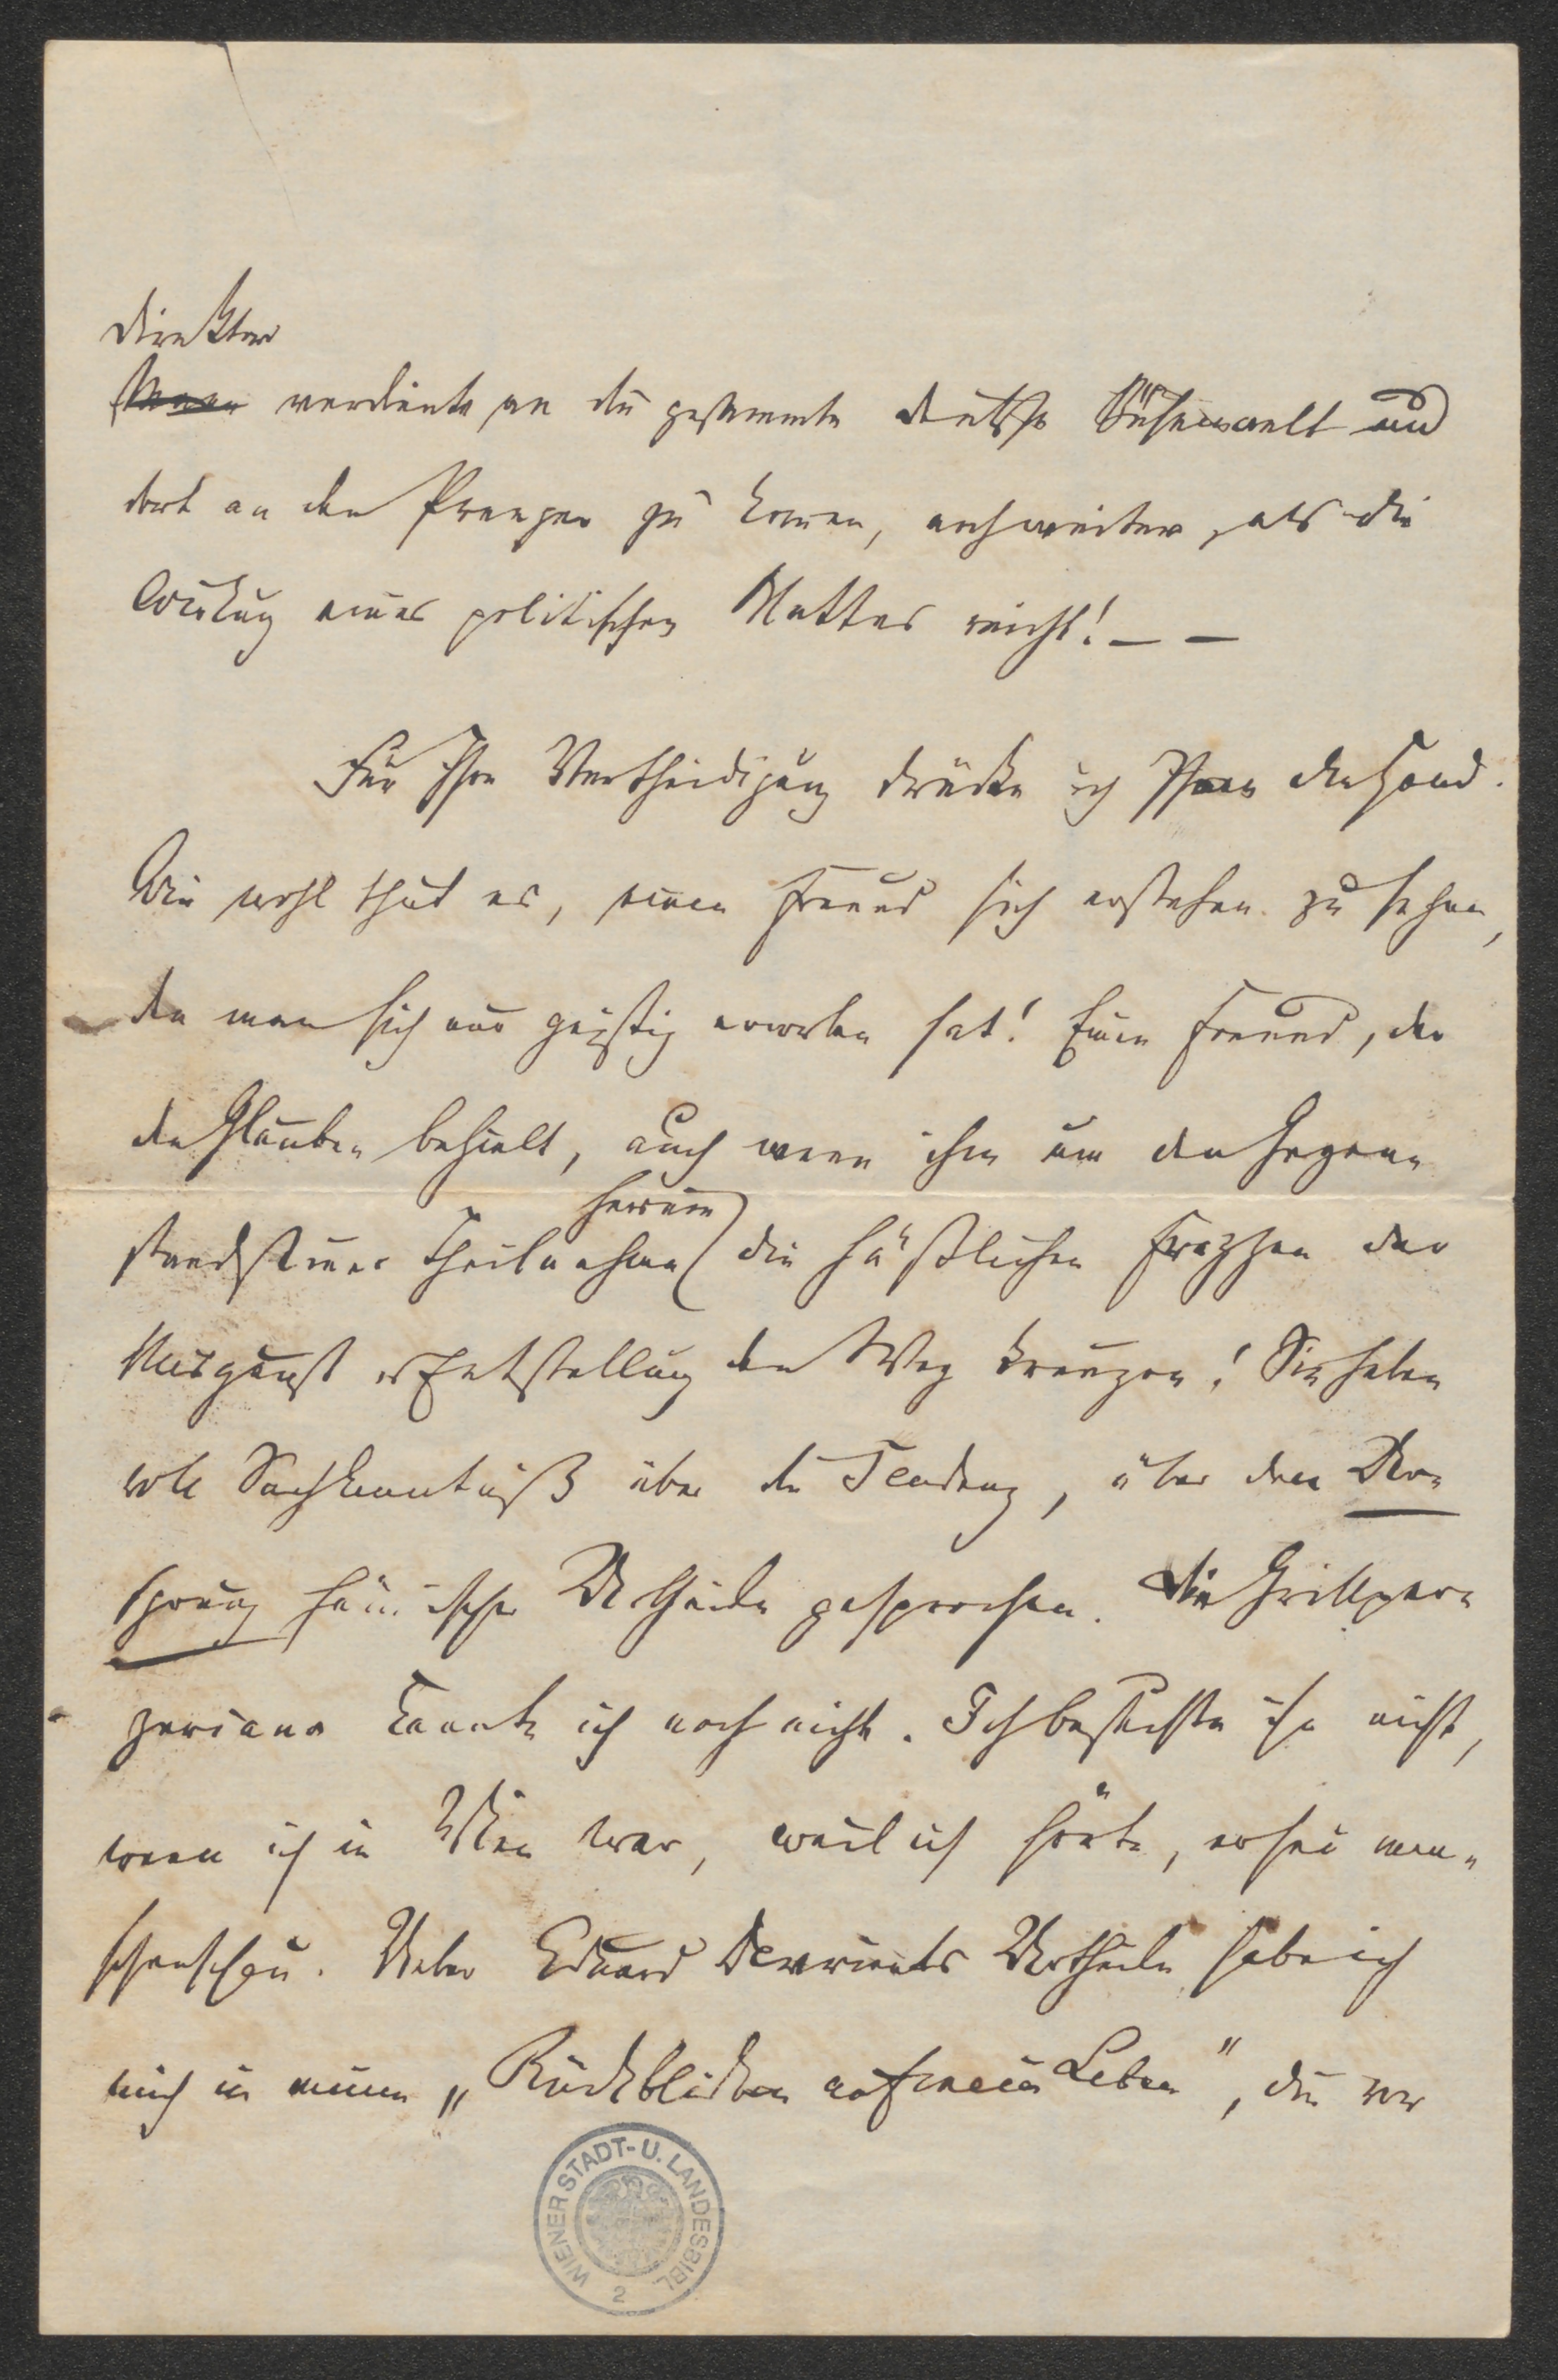 Direktor
Mann verdiente an die gesammte deutsche Bühnenwelt und
dort an den Pranger zu kommen, noch weiter, als die
Wirkung eines politischen Blattes reicht! — —
Für Ihre Vertheidigung drücke ich Ihnen die Hand.
Wie wohl thut es, einen Freund sich erstehen zu sehen,
den man sich nur geistig erworben hat! Einen Freund, der
den Glauben behielt, auch wenn ihm um den Gegen-
stand seiner Theilnahme herum die häßlichen Frazzen der
Misgunst u Entstellung den Weg kreuzen! Sie haben
voll Sachkenntniß über die Tendenz, über den Ur-
sprung hämischer Urtheile gesprochen. Die Grillpar-
zeriana kannte ich noch nicht. Ich besuchte ihn nicht,
wenn ich in Wien war, weil ich hörte, er sei men-
schenscheu. Ueber Eduard Devrients Urtheile habe ich
mich in meinen „Rückblicken auf mein Leben", die vor
WIENER STADT- U. LANDESBIBL.
2